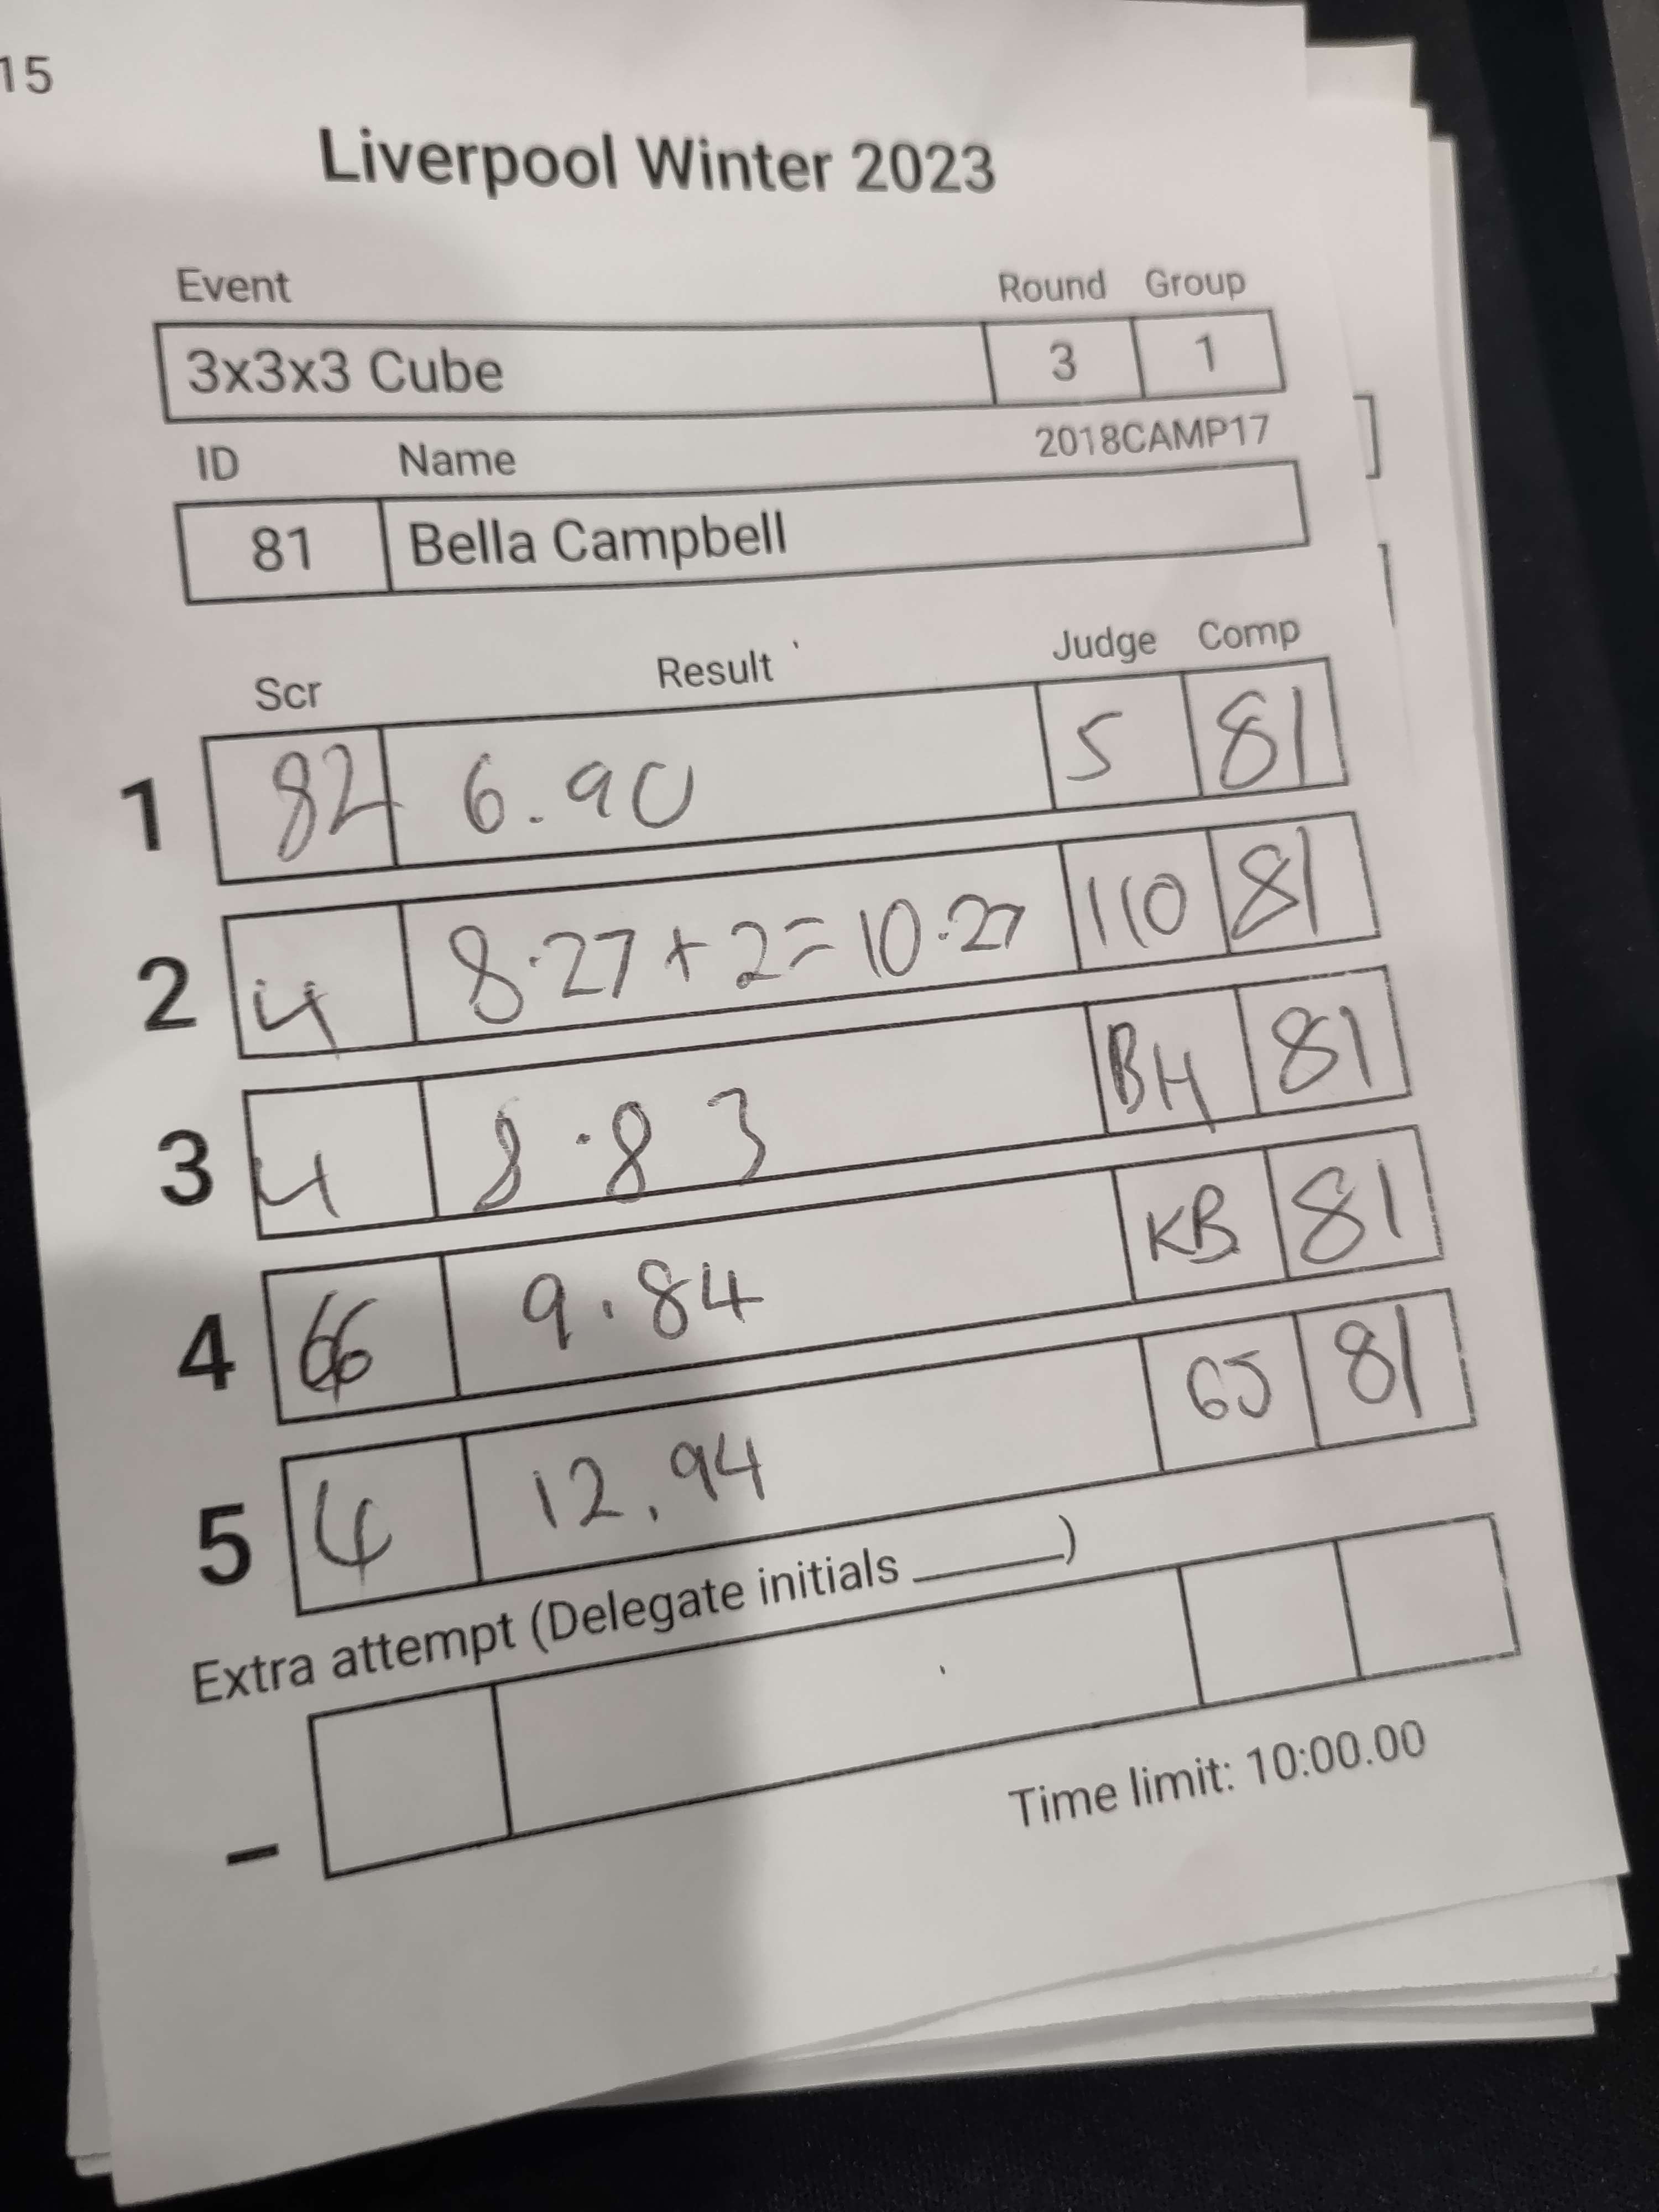 15
Liverpool Winter 2023
Event Round Group
3x3x3 Cube 3 1
ID Name 2018CAMP17
81 Bella Campbell
Scr Result Judge Comp
1 82 6.90 5 81
2 4 8.27+2=10.27 110 81
3 4 8.83 BH 81
4 9.84 KB 81
5 4 12.94 81
Extra attempt (Delegate initials _____)
–
Time limit: 10:00.00